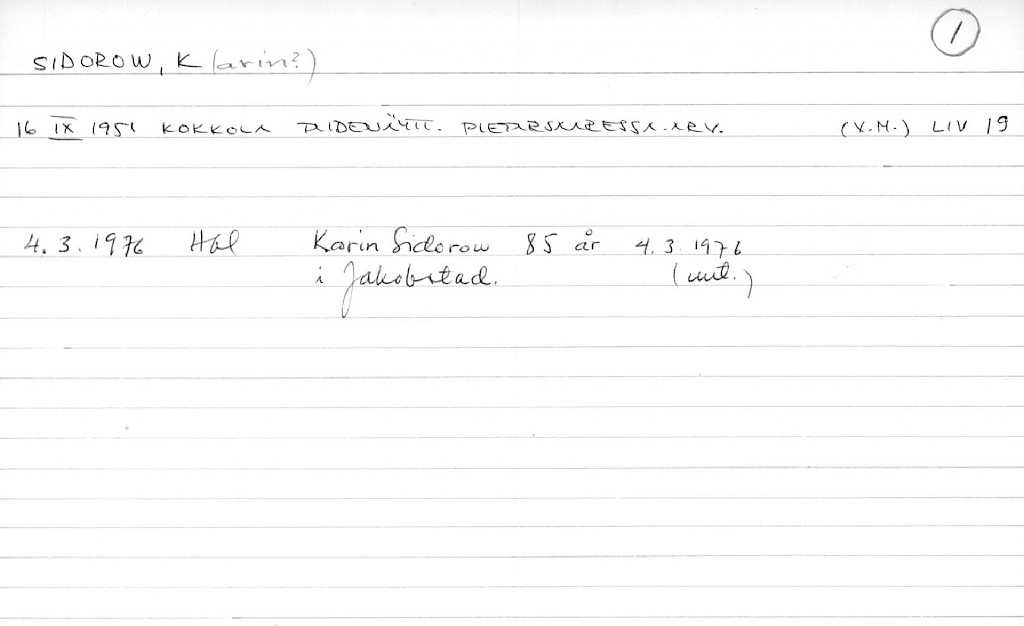 1
SIDOROW, K (arin?)
16 IX 1951 KOKKOLA TAIDENÄYTT. PIETARSAARESSA. ARV. (V.M.) LIV 19
4.3.1976 Hbl Karin Sidorow 85 år 4.3.1976
i Jakobstad. (unt.)